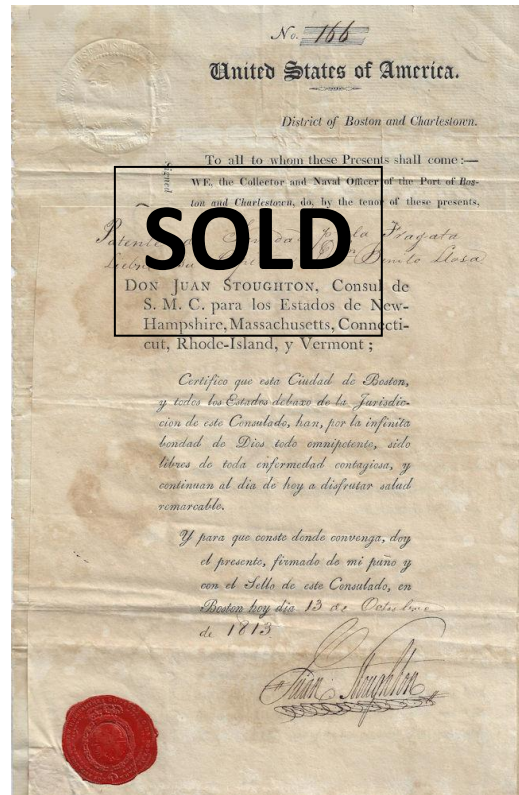 No. 166
United States of America.
District of Boston and Charlestown.
To all to whom these Presents shall come :—
Signed
WE, the Collector and Naval Officer of the Port of Bos-
ton and Charlestown, do, by the tenor of these presents,
SOLD
Patente de la Fragata
Benito Llosa
DON JUAN STOUGHTON, Consul de
S. M. C. para los Estados de New-
Hampshire, Massachusetts, Connecti-
cut, Rhode-Island, y Vermont ;
Certifico que esta Ciudad de Boston,
y todos los Estados debaxo de la Jurisdic-
cion de este Consulado, han, por la infinita
bondad de Dios todo omnipotente, sido
libres de toda enfermedad contagiosa, y
continuan al dia de hoy a disfrutar salud
remarcable.
Y para que conste donde convenga, doy
el presente, firmado de mi puño y
con el Sello de este Consulado, en
Boston hoy dia 13 de Octubre
de 1813
Juan Stoughton